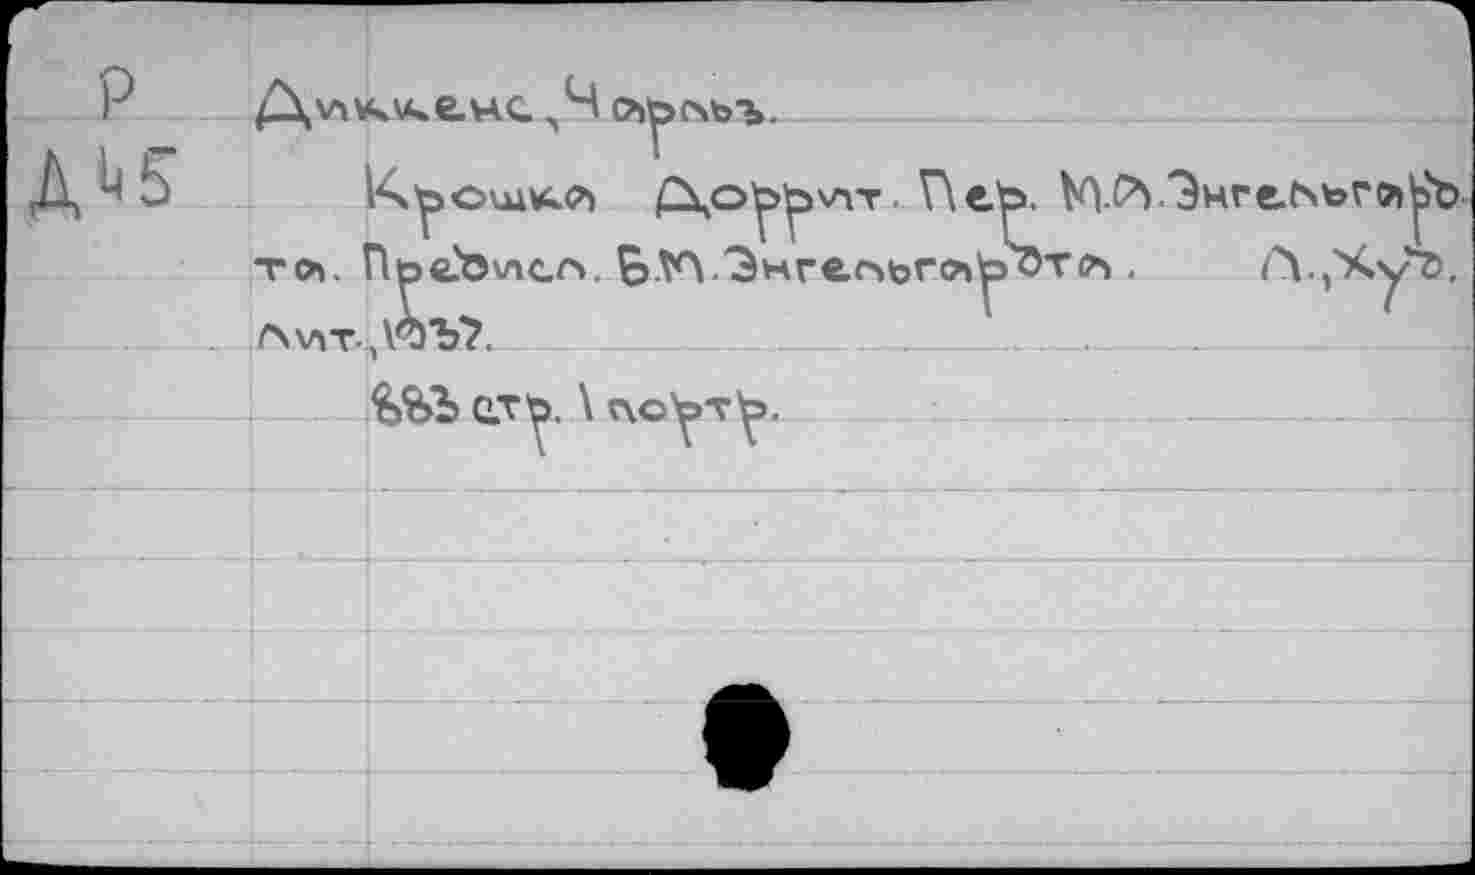 Р Диккенс, Чарльз.
Д45 Крошка Доррит. Пер. М.А.Энгельгард
та. Предисл. Б.М.Энгельгардта. Л., Худ.
лит.,
883 стр. 1 портр.